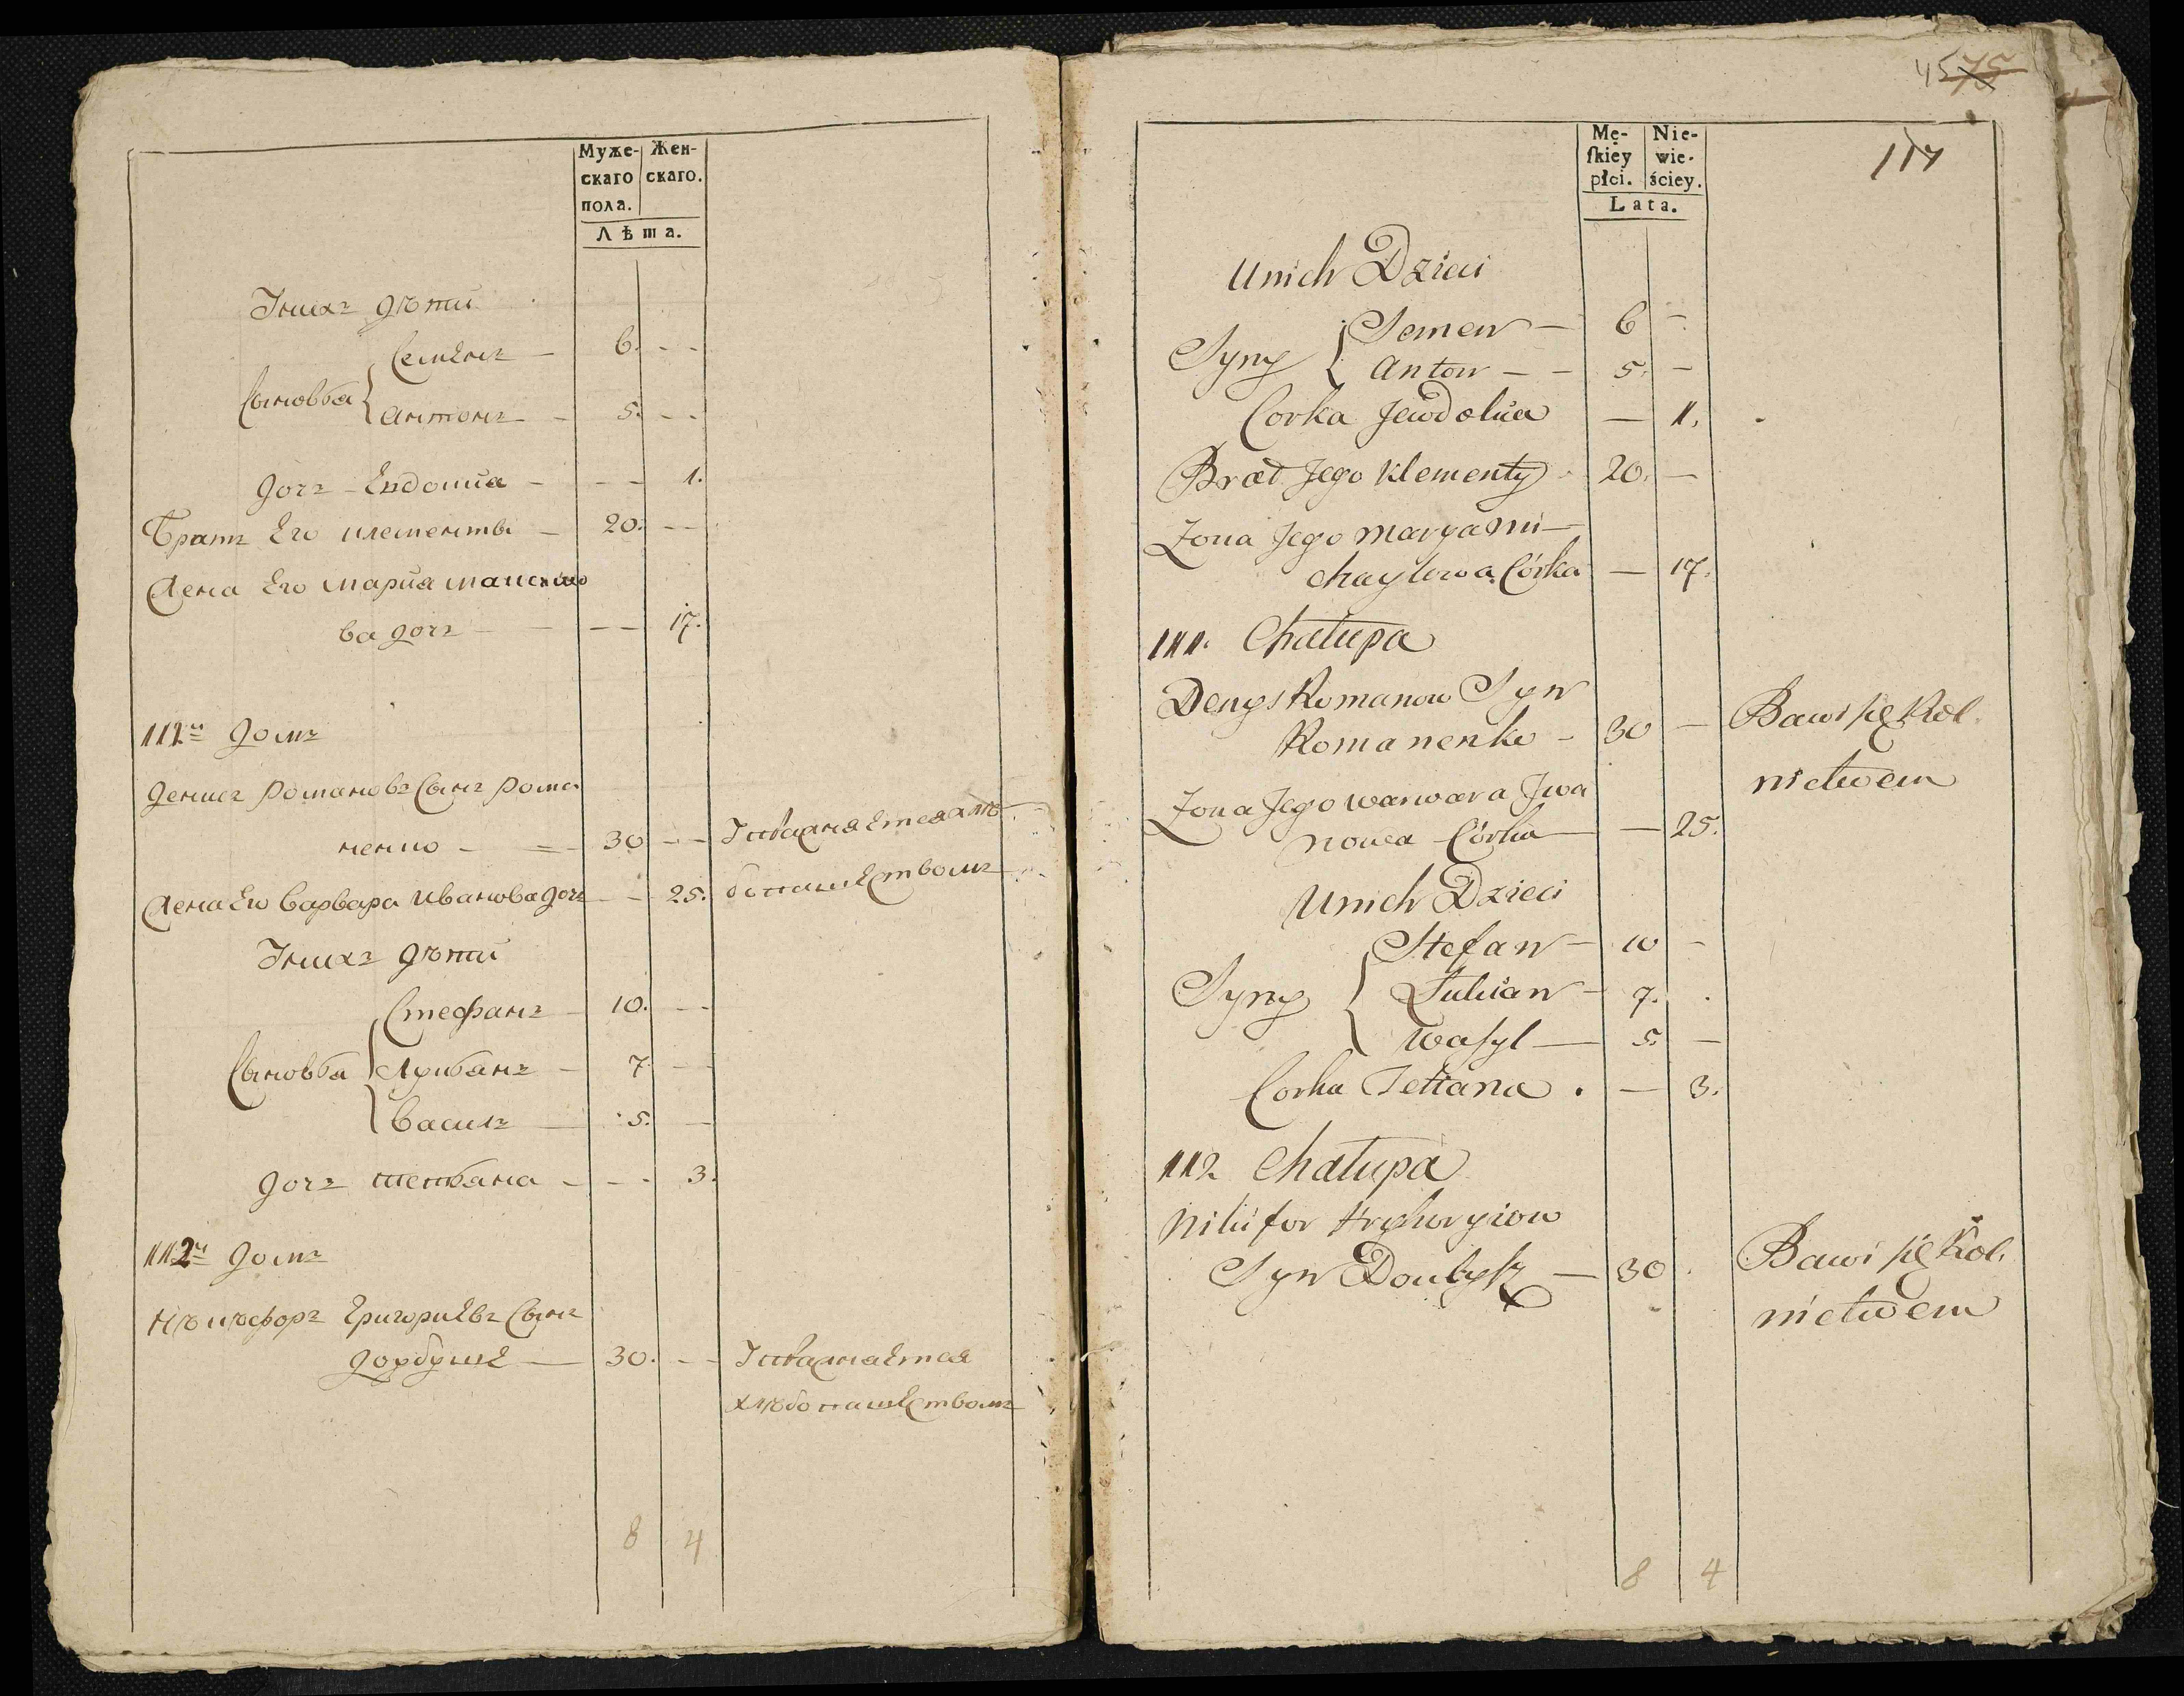 Муже-
скаго
пола.
Жен-
скаго.
Лѣта.
Уних дѣти
Сынов҃ья
Семенъ — 6. - -
антонъ — 5. - -
дочъ - Евдокиа - - - 1.
Братъ Его клементы — 20. - -
Жена Его мариа
ва дочъ - - - 17.
111й домъ
денисъ романовъ Сынъ рома
ненко — 30 - -
Жена Его варвара ивановадочъ - - 25.
Уних дѣти
Сыновья
Стефанъ - 10. - -
Лукианъ - 7. - -
василъ — 5. —
дочъ тетиана - - - 3.
112й домъ
никифоръ Григориевъ Сынъ
— 30. - -
Упражняется
хлебопашеством
8 4
45 75
117
Mę-
ſkiey
płci.
Nie-
wie-
ściey.
Lata.
Unich Dzieci
Syny
Semen — 6 -
Anton - - 5. -
Corka Jewdokia — 1.
Brat Jego Klementy - 20. —
Żona Jego Marya Mi—
chayłowa Córka — 17.
111. Chałupa
Denys Romanow Syn
Romanenko - 30 —
Bawi się Rol.
nictwem
Żona Jego Warwara Jwa
nowa Córka — — 25.
Unich Dzieci
Syny
Stefan — 10 -
Łukian - 7. .
Waſyl — 5. —
Corka Tetiana . — 3.
112 Chałupa
Nikifor Hryhoryiow
Syn — 30 .
Bawi się Rol.
nictwem
8 4